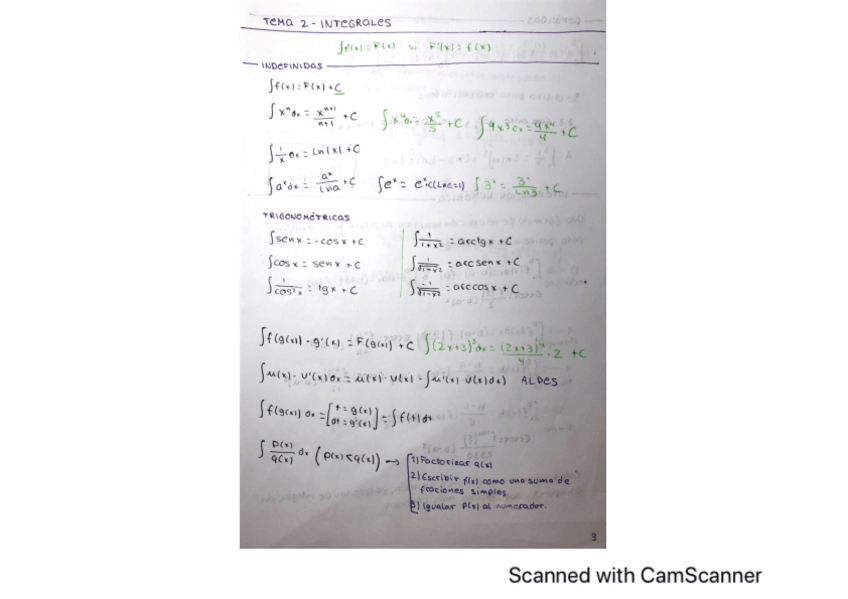 TEMA 2 - INTEGRALES
∫f(x) = F(x) si F'(x) = f(x)
INDEFINIDAS
∫f(x) = F(x) + C
∫xⁿdx = xⁿ⁺¹/n+1 + C ∫x⁴dx = x⁵/5 + C ∫4x³dx = 4x⁴/4 + C
∫1/x dx = Ln|x| + C
∫aˣdx = aˣ/Lna + C ∫eˣ = eˣ·C(Lne=1) ∫3ˣ = 3ˣ/Ln3 + C
TRIGONOMÉTRICAS
∫senx = -cosx + C ∫1/1+x² = arctgx + C
∫cosx = senx + C ∫1/√1-x² = arcsenx + C
∫1/cos²x = tgx + C ∫-1/√1-x² = arccosx + C
∫f(g(x))·g'(x) = F(g(x)) + C ∫(2x+3)³dx = (2x+3)⁴/4 · 2 + C
∫u(x)·v'(x)dx = u(x)·v(x) - ∫u'(x)·v(x)dx) ALPES
∫f(g(x))dx = [t = g(x) dt = g'(x)] = ∫f(t)dt
∫P(x)/q(x) dx (p(x)<q(x)) → 1) Factorizar q(x)
2) Escribir f(x) como una suma de
fraciones simples
3) Igualar P(x) al numerador.
3
Scanned with CamScanner